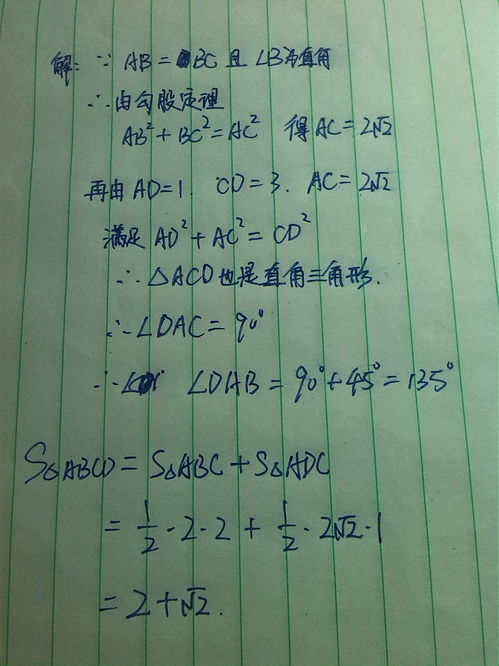 解: ∵ AB = BC 且 ∠B为直角
∴由勾股定理
AB²+BC²=AC² 得AC=2√2
再由AD=1. CD=3. AC=2√2
满足 AD²+AC²=CD²
∴△ACD也是直角三角形.
∴∠DAC=90°
∴ ∠DAB=90°+45°=135°
S△ABCD=S△ABC+S△ADC
=1/2·2·2+1/2·2√2·1
=2+√2.